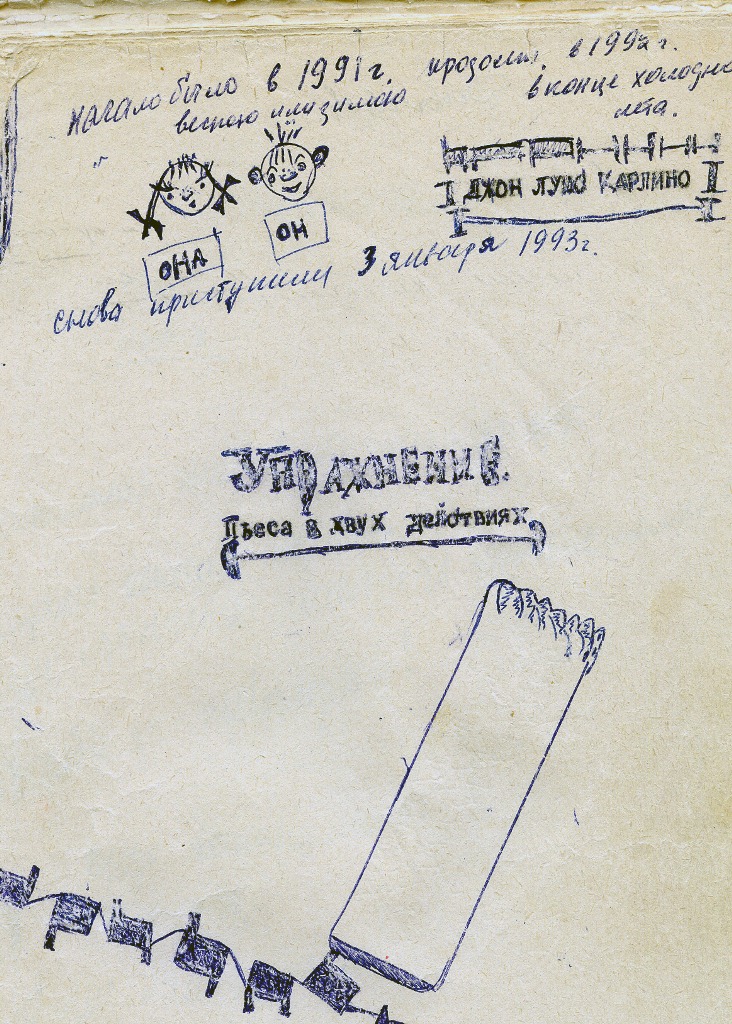 начало было в 1991 г.
весною или зимою
продолж. в 1992 г.
в конце холодно
лета.
ДЖОН ЛУИ КАРЛИНО
ОНА
ОН
снова приступили 3 января 1993 г.
УПРАЖНЕНИЕ.
Пьеса в двух действиях